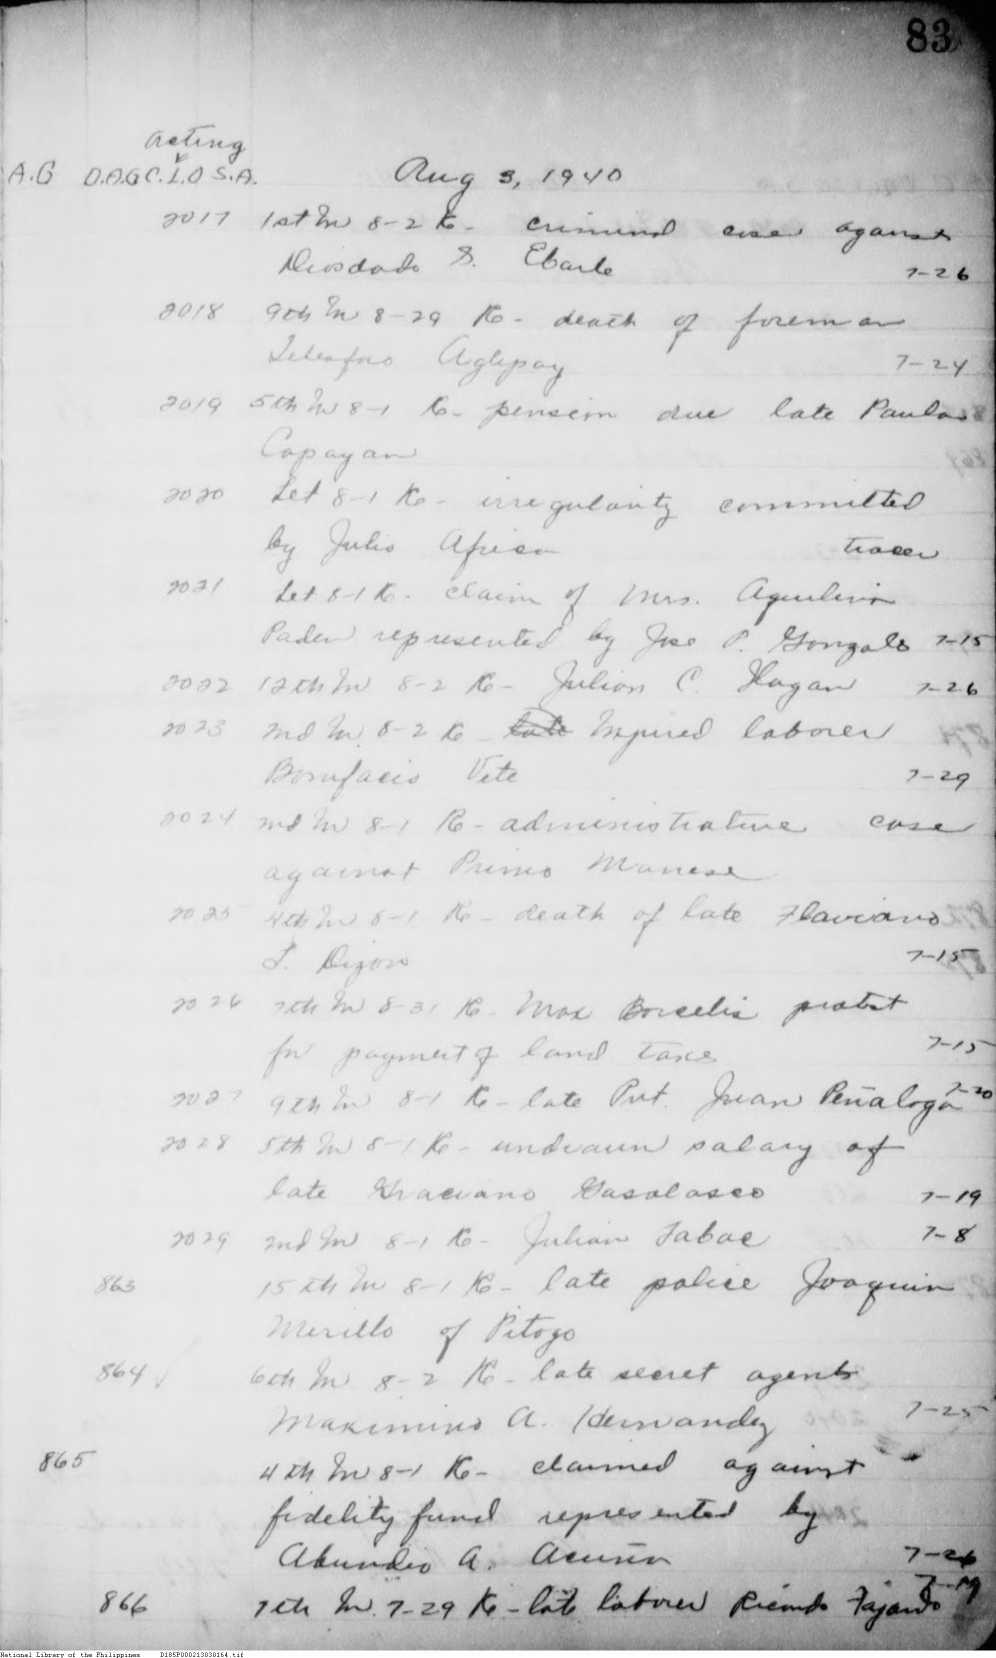 83
Acting
A.G D.A.G C.I.O S.A. Aug 3, 1940
2017 1st In 8-2 K- criminal case against
Diosdado S. Ebarle 7-26
2018 9th In 8-29 K- death of foreman
Aglipay 7-24
2019 5th In 8-1 K- pension due late Paulo
Capayan
2020 Let 8-1 K- irregularity committed
by Julio Africa tracer
2021 Let 8-1 K- claim of Mrs. Aquilina
Paden represented by Jose P. Gonzales 7-15
2022 12th In 8-2 K- Julian C. Hagan 7-26
2023 2nd In 8-2 K- late Injured laborer
Bonifacio Vete 7-29
2024 2nd In 8-1 K- administrative case
against Primo Manese
2025 4th In 8-1 K- death of late Flaviano
Dizon 7-15
2026 7th In 8-31 K- Max Borcelis protest
for payment of land taxe 7-15
2027 9th In 8-1 K- late Pvt. Juan Peñaloga 7-20
2028 5th In 8-1 K- undrawn salary of
late Graciano Gasalasco 7-19
2029 2nd In 8-1 K- Julian Tabac 7-8
863 15th In 8-1 K- late police Joaquin
Merillo of Pitogo
864 6th In 8-2 K- late secret agent
Maximino A. Hernandez 7-25
865 4th In 8-1 K- claimed against
fidelity fund represented by
Abundio A. Acuña 7-26
7-19
866 7th In. 7-29 K- late laborer Ricardo Fajardo
National Library of the Philippines D185P000213030164.tif